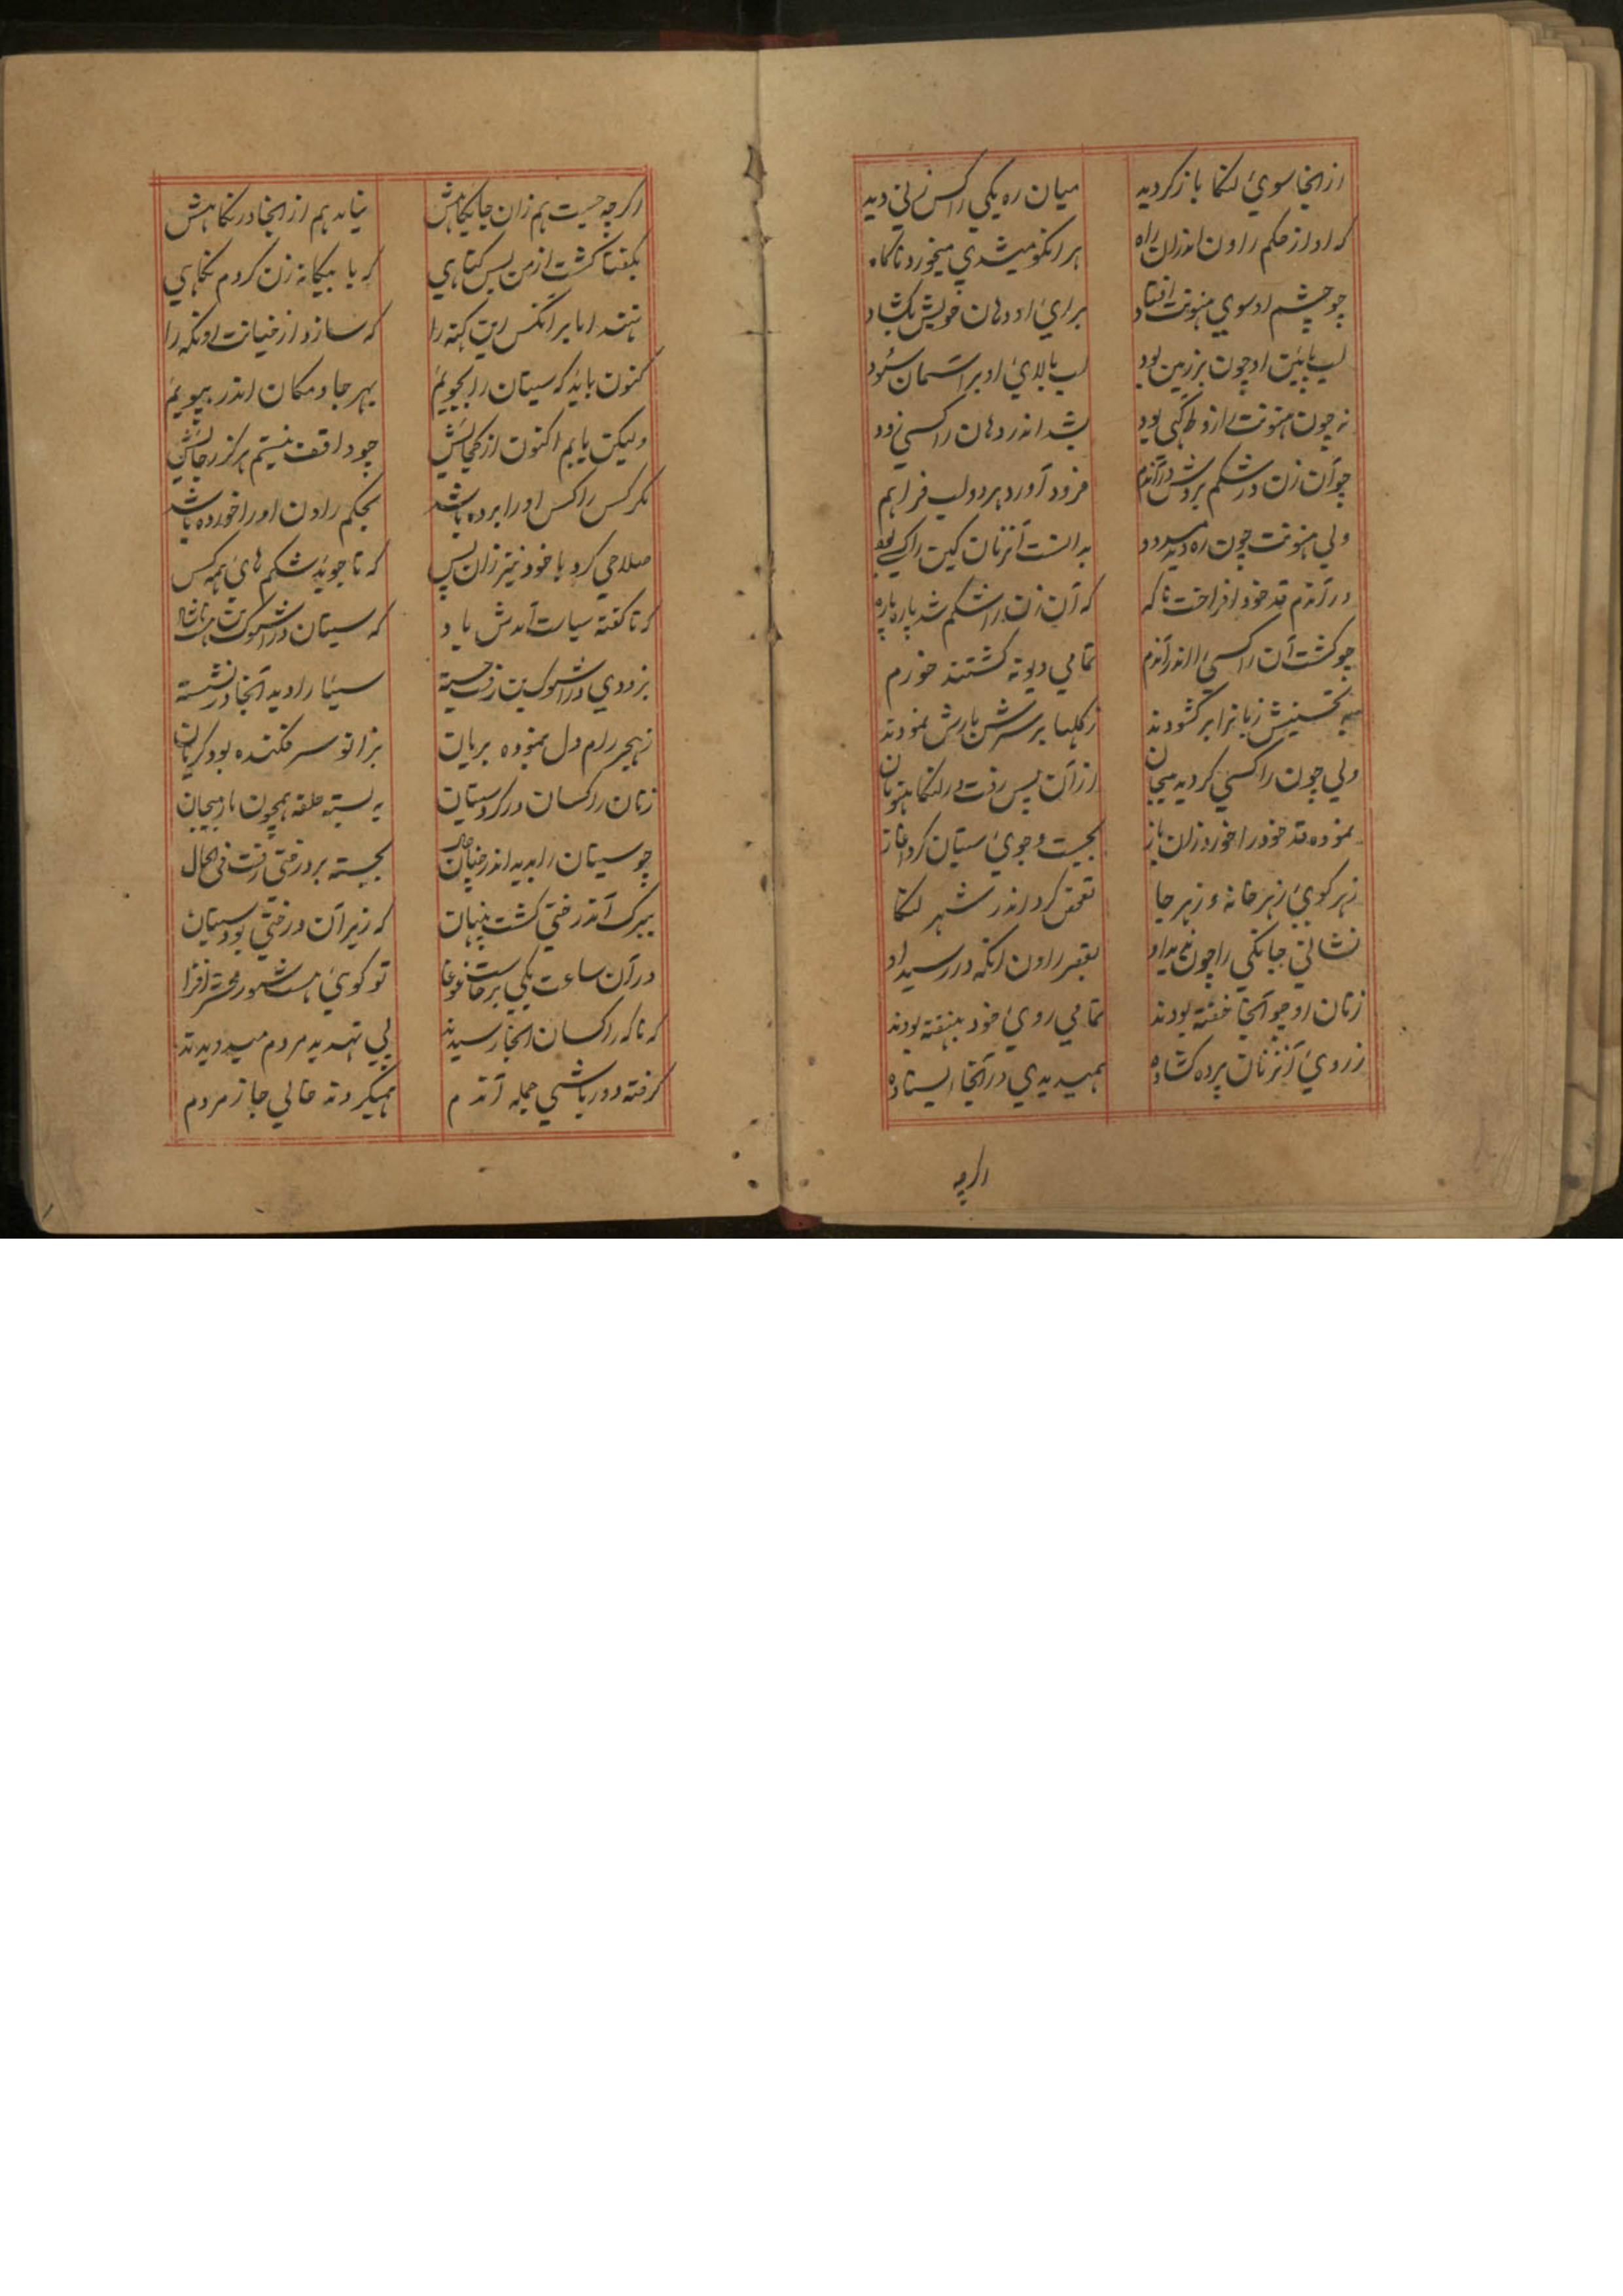 از انجا سوئ لنکا باز کردید میان ره یکی راکس زنی دید
که او از حکم راون اندران راه هر انکو میشدی میخورد ناکاه
چو چشم او سوی هنونت افتاد برائ او دهان خویش بکشاد
لب پائین او چون بر زمین بود لب بالائ او بر اسمان سود
نه چون هنونت را زو اکهی بود بشد اندر دهان راکسی زود
چو آن زن در شکم بردش دراندم فرود آورد هر دو لب فراهم
ولی هنونت چون ره دید بدانست آنزمان کین راکسی بود
در آندم قد خود افراخت ناکه که آن زن را شکم شد پاره پاره
چو کشت آن راکسی را اندر آندم تمامی دیوته کشتند خورم
به تحسینش زبانرا بر کشودند ز کلها بر سرش بارش نمودند
ولی چون راکسی کردید بیجان از آن پس رفت در لنکا هنومان
نموده قد خود را خورد زان باز بجست و جوئ سیتان کرد اغاز
ز هر کوئ ز هر خانه و ز هر جا تفحص کرد اندر شهر لنکا
نشانی جانکی را چون بقصر راون انکه در رسید او
زنان او چو آنجا خفته بودند تمامی روئ خود بنهفته بودند
ز روئ آنزنان پرده کشاده همیدیدی در آنجا ایستاده
اکرچه
اکرچه جست هم زان جایکاهش نیامد هم از انجا در نکاهش
بکفتا کشت از من بس کناهی که با بیکانه زن کردم نکاهی
نهند اما بر انکس این کنه را که سازد از خیانت او نکه را
کنون باید که سیتان را بجویم بهر جا و مکان اندر بپویم
ولیکن یابم اکنون از کجایش چو واقف نیستم هرکز ز جایش
مکر کس راکس او را برده باشد بحکم راون او را خورده باشد
صلاحی کرد با خود نیز زان پس که تا جوید شکم هائ همه کس
که تا کفته سیات آمدش یاد که سیتان در
بزودی در اشوک بن رفت جسته سیتا را دید آنجا در نشسته
ز هجر رام دل نموده بریان بزانو سر فکنده بود کریان
زنان راکسان در کرد سیتان به بسته حلقه همچون مار پیچان
چو سیتان را بدید اندر چنان حال بجسته بر درختی رفت فی الحال
ببرک آندرختی کشت پنهان که زیر آن درختی بود سیتان
در آن ساعت یکی برخاست غوغا تو کوئ هست شور محشر افزا
که ناکه راکسان انجا رسیدند پی تهدید مردم میدویدند
کرفته دور باشی جمله آندم همیکردند خالی جا ز مردم